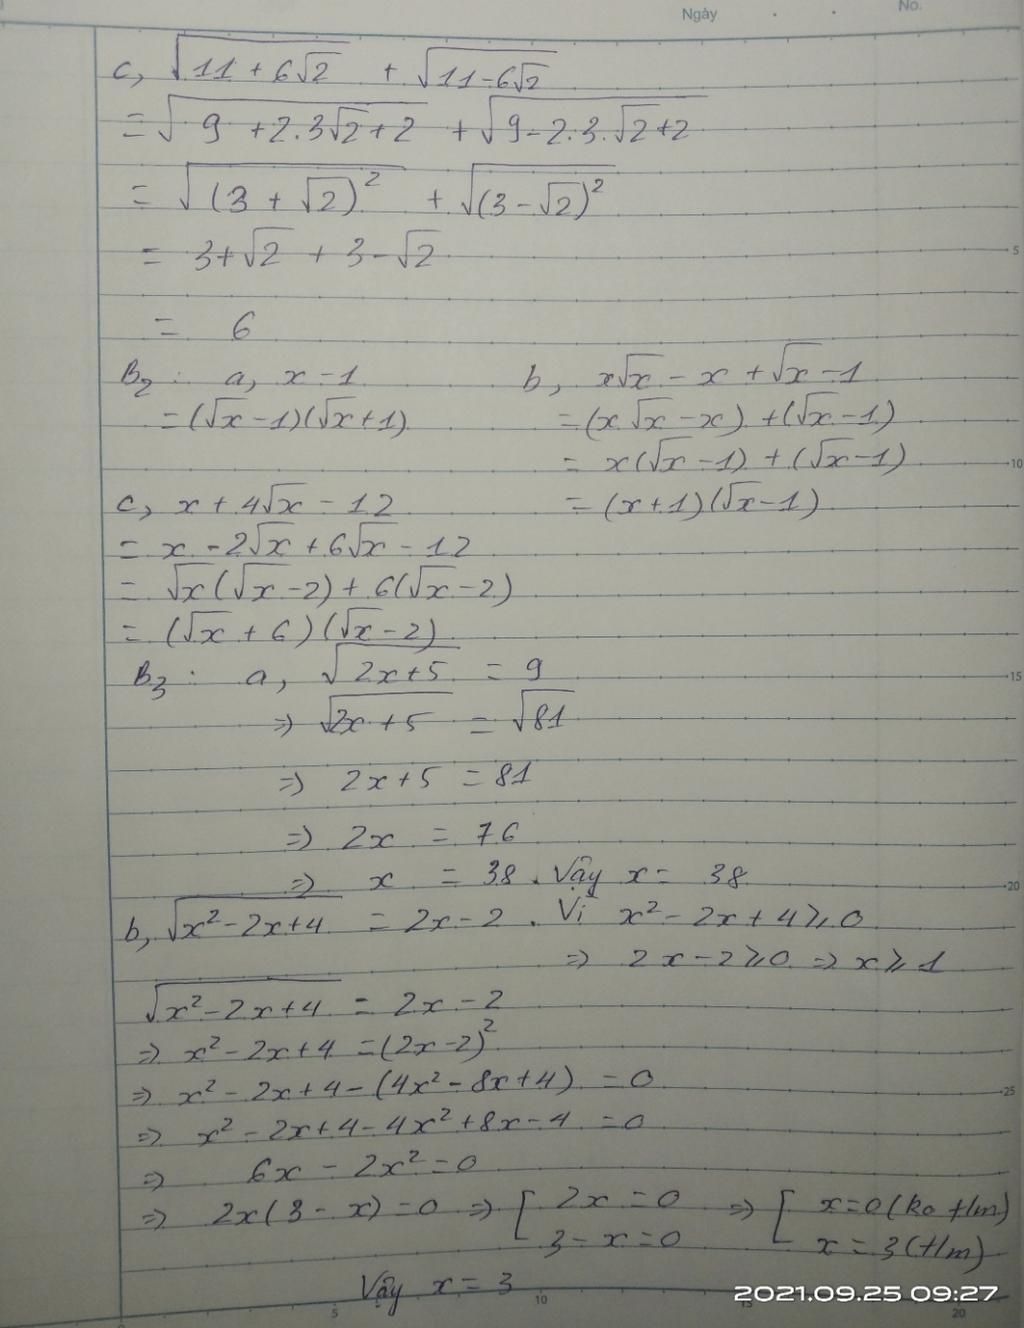 Ngày No.
c, √(11 + 6√2) + √(11 - 6√2)
= √(9 + 2.3√2 + 2) + √(9 - 2.3.√2 + 2)
= √((3 + √2)²) + √((3 - √2)²)
= 3 + √2 + 3 - √2
= 6
B2 : a, x - 1
= (√x - 1)(√x + 1)
b, x√x - x + √x - 1
= (x√x - x) + (√x - 1)
= x(√x - 1) + (√x - 1)
= (x + 1)(√x - 1)
c, x + 4√x - 12
= x - 2√x + 6√x - 12
= √x(√x - 2) + 6(√x - 2)
= (√x + 6)(√x - 2)
B3 : a, √(2x + 5) = 9
=> √(2x + 5) = √81
=> 2x + 5 = 81
=> 2x = 76
=> x = 38. Vậy x = 38
b, √(x² - 2x + 4) = 2x - 2. Vì x² - 2x + 4 ⩾ 0
=> 2x - 2 ⩾ 0 => x ⩾ 1
√(x² - 2x + 4) = 2x - 2
=> x² - 2x + 4 = (2x - 2)²
=> x² - 2x + 4 - (4x² - 8x + 4) = 0
=> x² - 2x + 4 - 4x² + 8x - 4 = 0
=> 6x - 2x² = 0
=> 2x(3 - x) = 0 => [ 2x = 0 => [ x = 0 (ko t/m)
3 - x = 0 x = 3 (t/m)
Vậy x = 3
5
10
15
20
25
5 10 15 20
2021.09.25 09:27